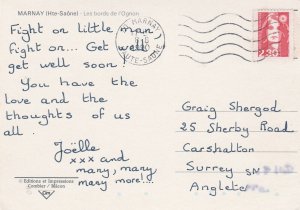 MARNAY (Hte-Saône) - Les bords de l'Ognon
Fight on little man
fight on... Get well
get well soon!
You have the
love and the
thoughts of us
all.
Joëlle
xxx and
many, many
many more!...
© Editions et Impressions
Combier / Mâcon
MARNAY
HUTE-SAONE
2,30
Craig Shergod
25 Sherby Road
Carshalton
Surrey SM
Anglete